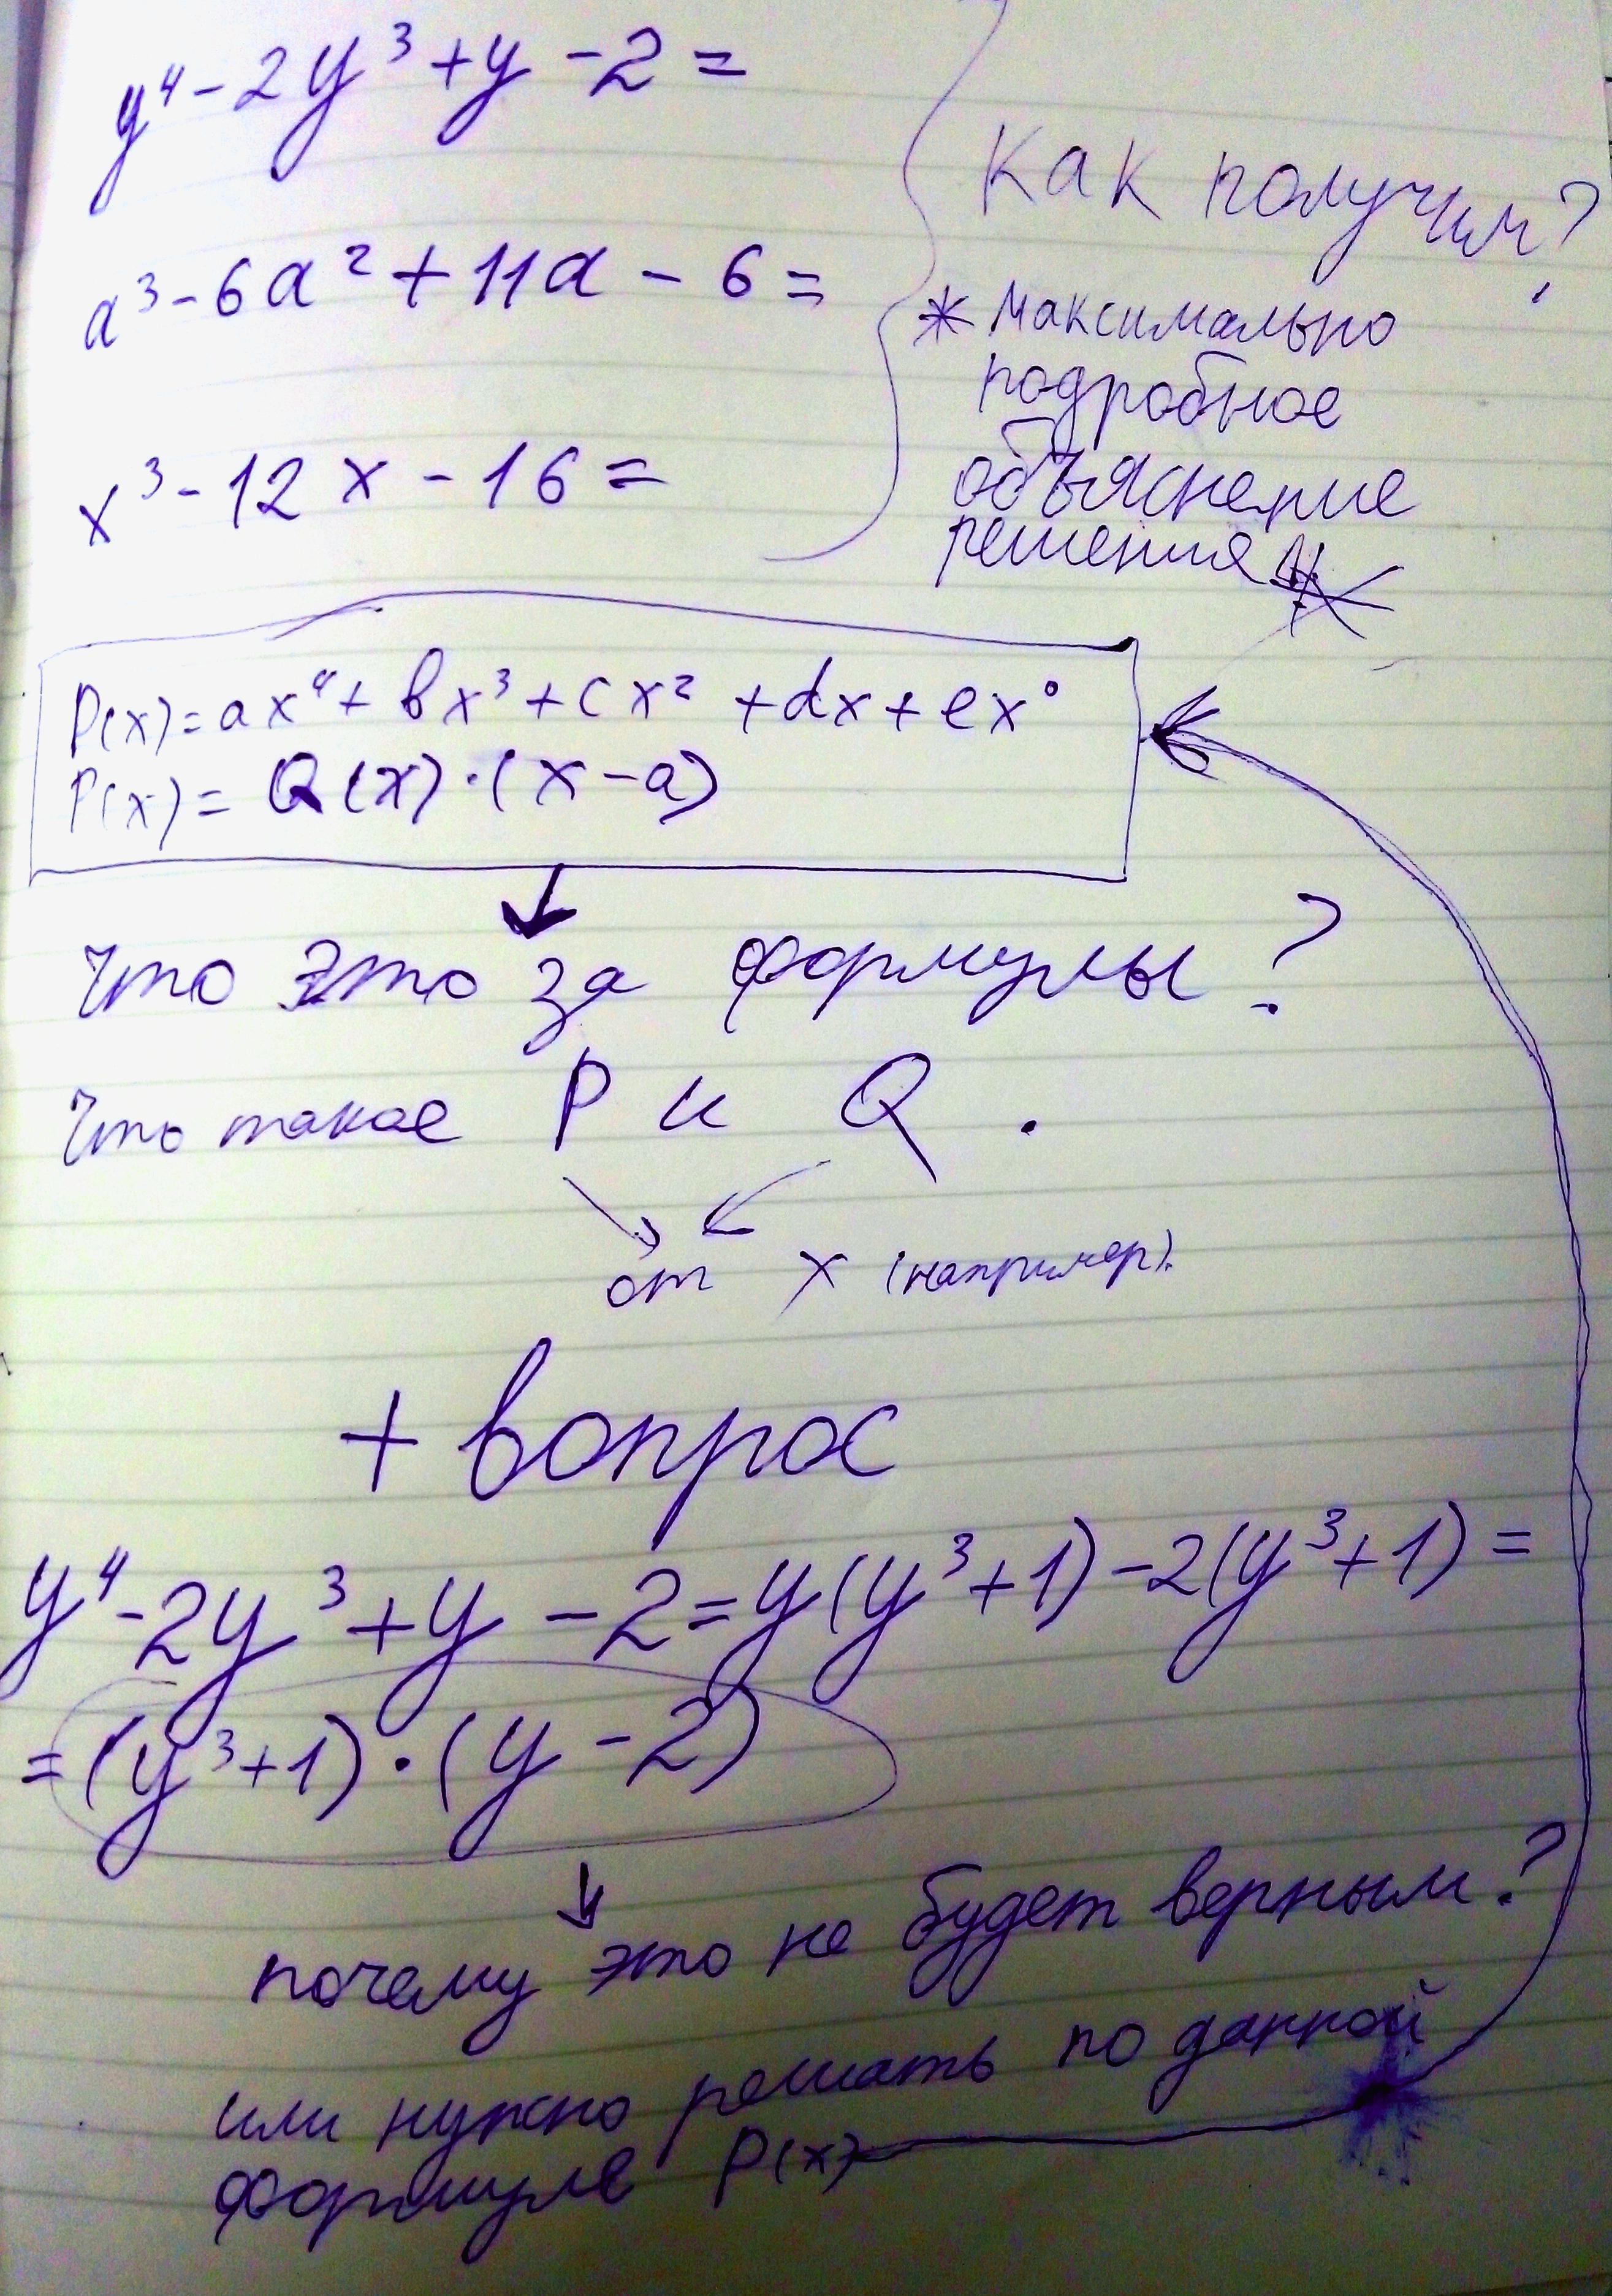 y⁴ - 2y³ + y - 2 =
a³ - 6a² + 11a - 6 =
x³ - 12x - 16 =
Как получим?
* максимально
подробное
объяснение
решения *
P(x) = ax⁴ + bx³ + cx² + dx + ex⁰
P(x) = Q(x)·(x - a)
Что это за формулы?
Что такое P и Q.
от x (например).
+ вопрос
y⁴ - 2y³ + y - 2 = y(y³ + 1) - 2(y³ + 1) =
= (y³ + 1)·(y - 2)
почему это не будет верным?
или нужно решать по данной
формуле P(x)